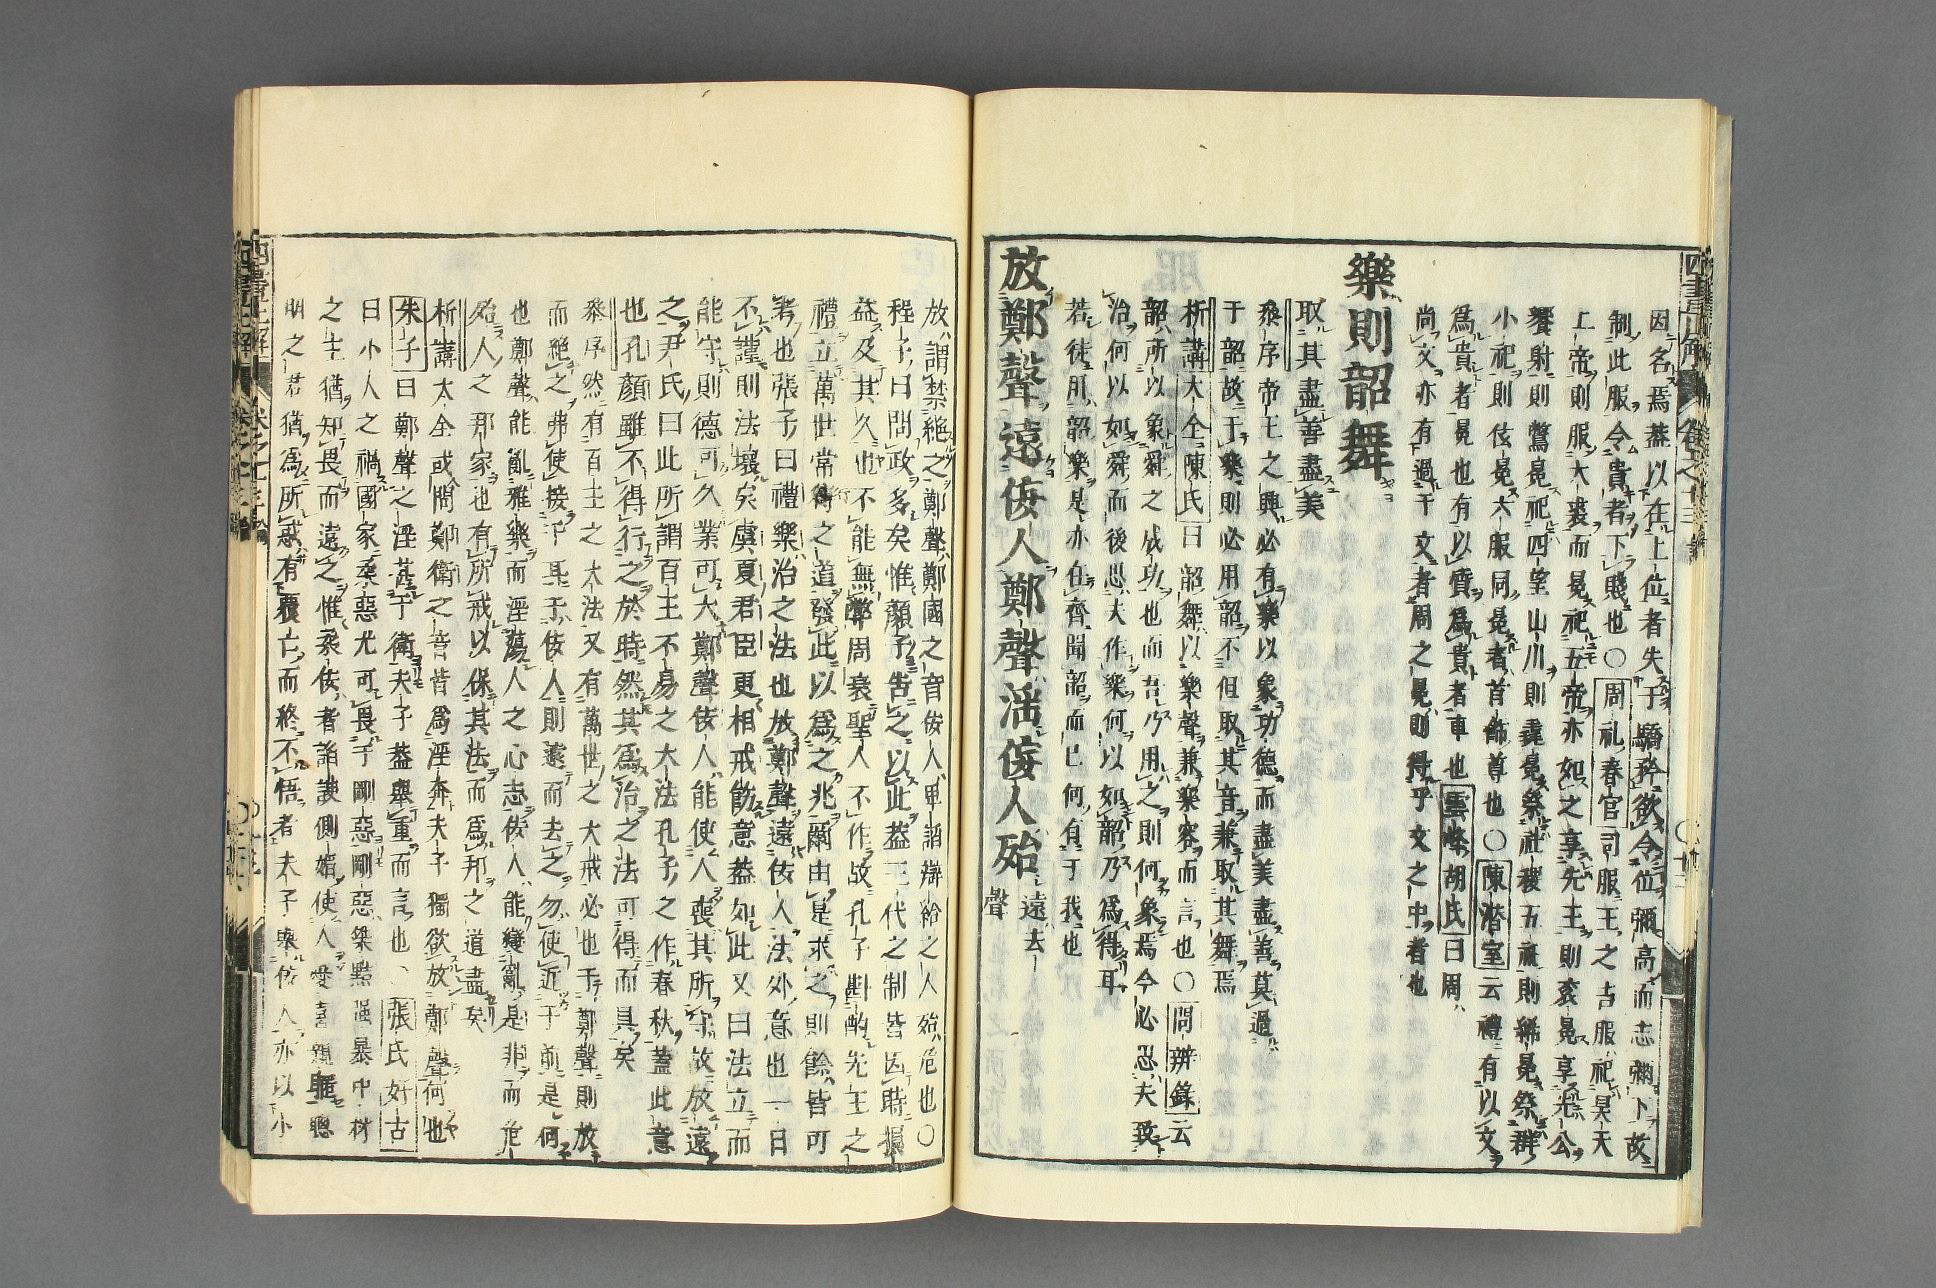 因名焉蓋以在上位者失于驕矜欲令位彌高而志彌下故
制此服令貴者下賤也○周礼春官司服王之吉服祀昊天
上帝則服大裘而冕祀五帝亦如之享先王則袞冕享先公
饗射則鷩冕祀四望山川則毳冕祭社稷五祀則絺冕祭群
小祀則玄冕六服同冕者首飾尊也○陳潛室云禮有以文
為貴者冕也有以質為貴者車也雲峰胡氏曰周
尚文亦有過于文者周之冕則得乎文之中者也
樂則韶舞
取其盡善盡美
叅序帝王之興必有樂以象功德而盡美盡善莫過
于韶故于樂則必用韶不但取其音兼取其舞焉
析講大全陳氏曰韶舞以樂聲兼樂容而言也○問辨錄云
韶所以象舜之成功也而吾乃用之則何象焉今必思夫致
治何以如舜而後思夫作樂何以如韶乃為得耳
若徒用韶樂是亦在齊聞韶而已何有于我也
放鄭聲遠佞人鄭聲淫佞人殆遠去聲
放謂禁絶之鄭聲鄭國之音佞人卑諂辯給之人殆危也○
程子曰問政多矣惟顔子告之以此葢三代之制皆因時損
益及其久也不能無弊周衰聖人不作故孔子斟酌先王之
禮立萬世常行之道發此以為之兆爾由是求之則餘皆可
考也張子曰禮樂治之法也放鄭聲遠佞人法外意也一日
不謹則法壞矣虞夏君臣更相戒飭意葢如此又曰法立而
能守則德可久業可大鄭聲佞人能使人喪其所守故放遠
之尹氏曰此所謂百王不易之大法孔子之作春秋蓋此意
也孔顔雖不得行之於時然其為治之法可得而具矣
叅序然有百王之大法又有萬世之大戒必也于鄭聲則放
而絶之弗使接于耳于佞人則遠而去之勿使近于前是何
也鄭聲能亂雅樂而淫蕩人之心志佞人能變亂是非而危
殆人之邦家也有所戒以保其法而為邦之道盡矣
析講大全或問鄭衛之音皆為淫奔夫子獨欲放鄭聲何也
朱子曰鄭聲之淫甚于衛夫子葢舉重而言也張氏好古
曰小人之禍國家柔惡尤可畏于剛惡剛惡桀黠强暴中材
之主猶知畏而遠之惟柔佞者諂諛側媚使人愛喜親暱聰
明之君猶為所惑有覆亡而終不悟者夫子與佞人亦以小